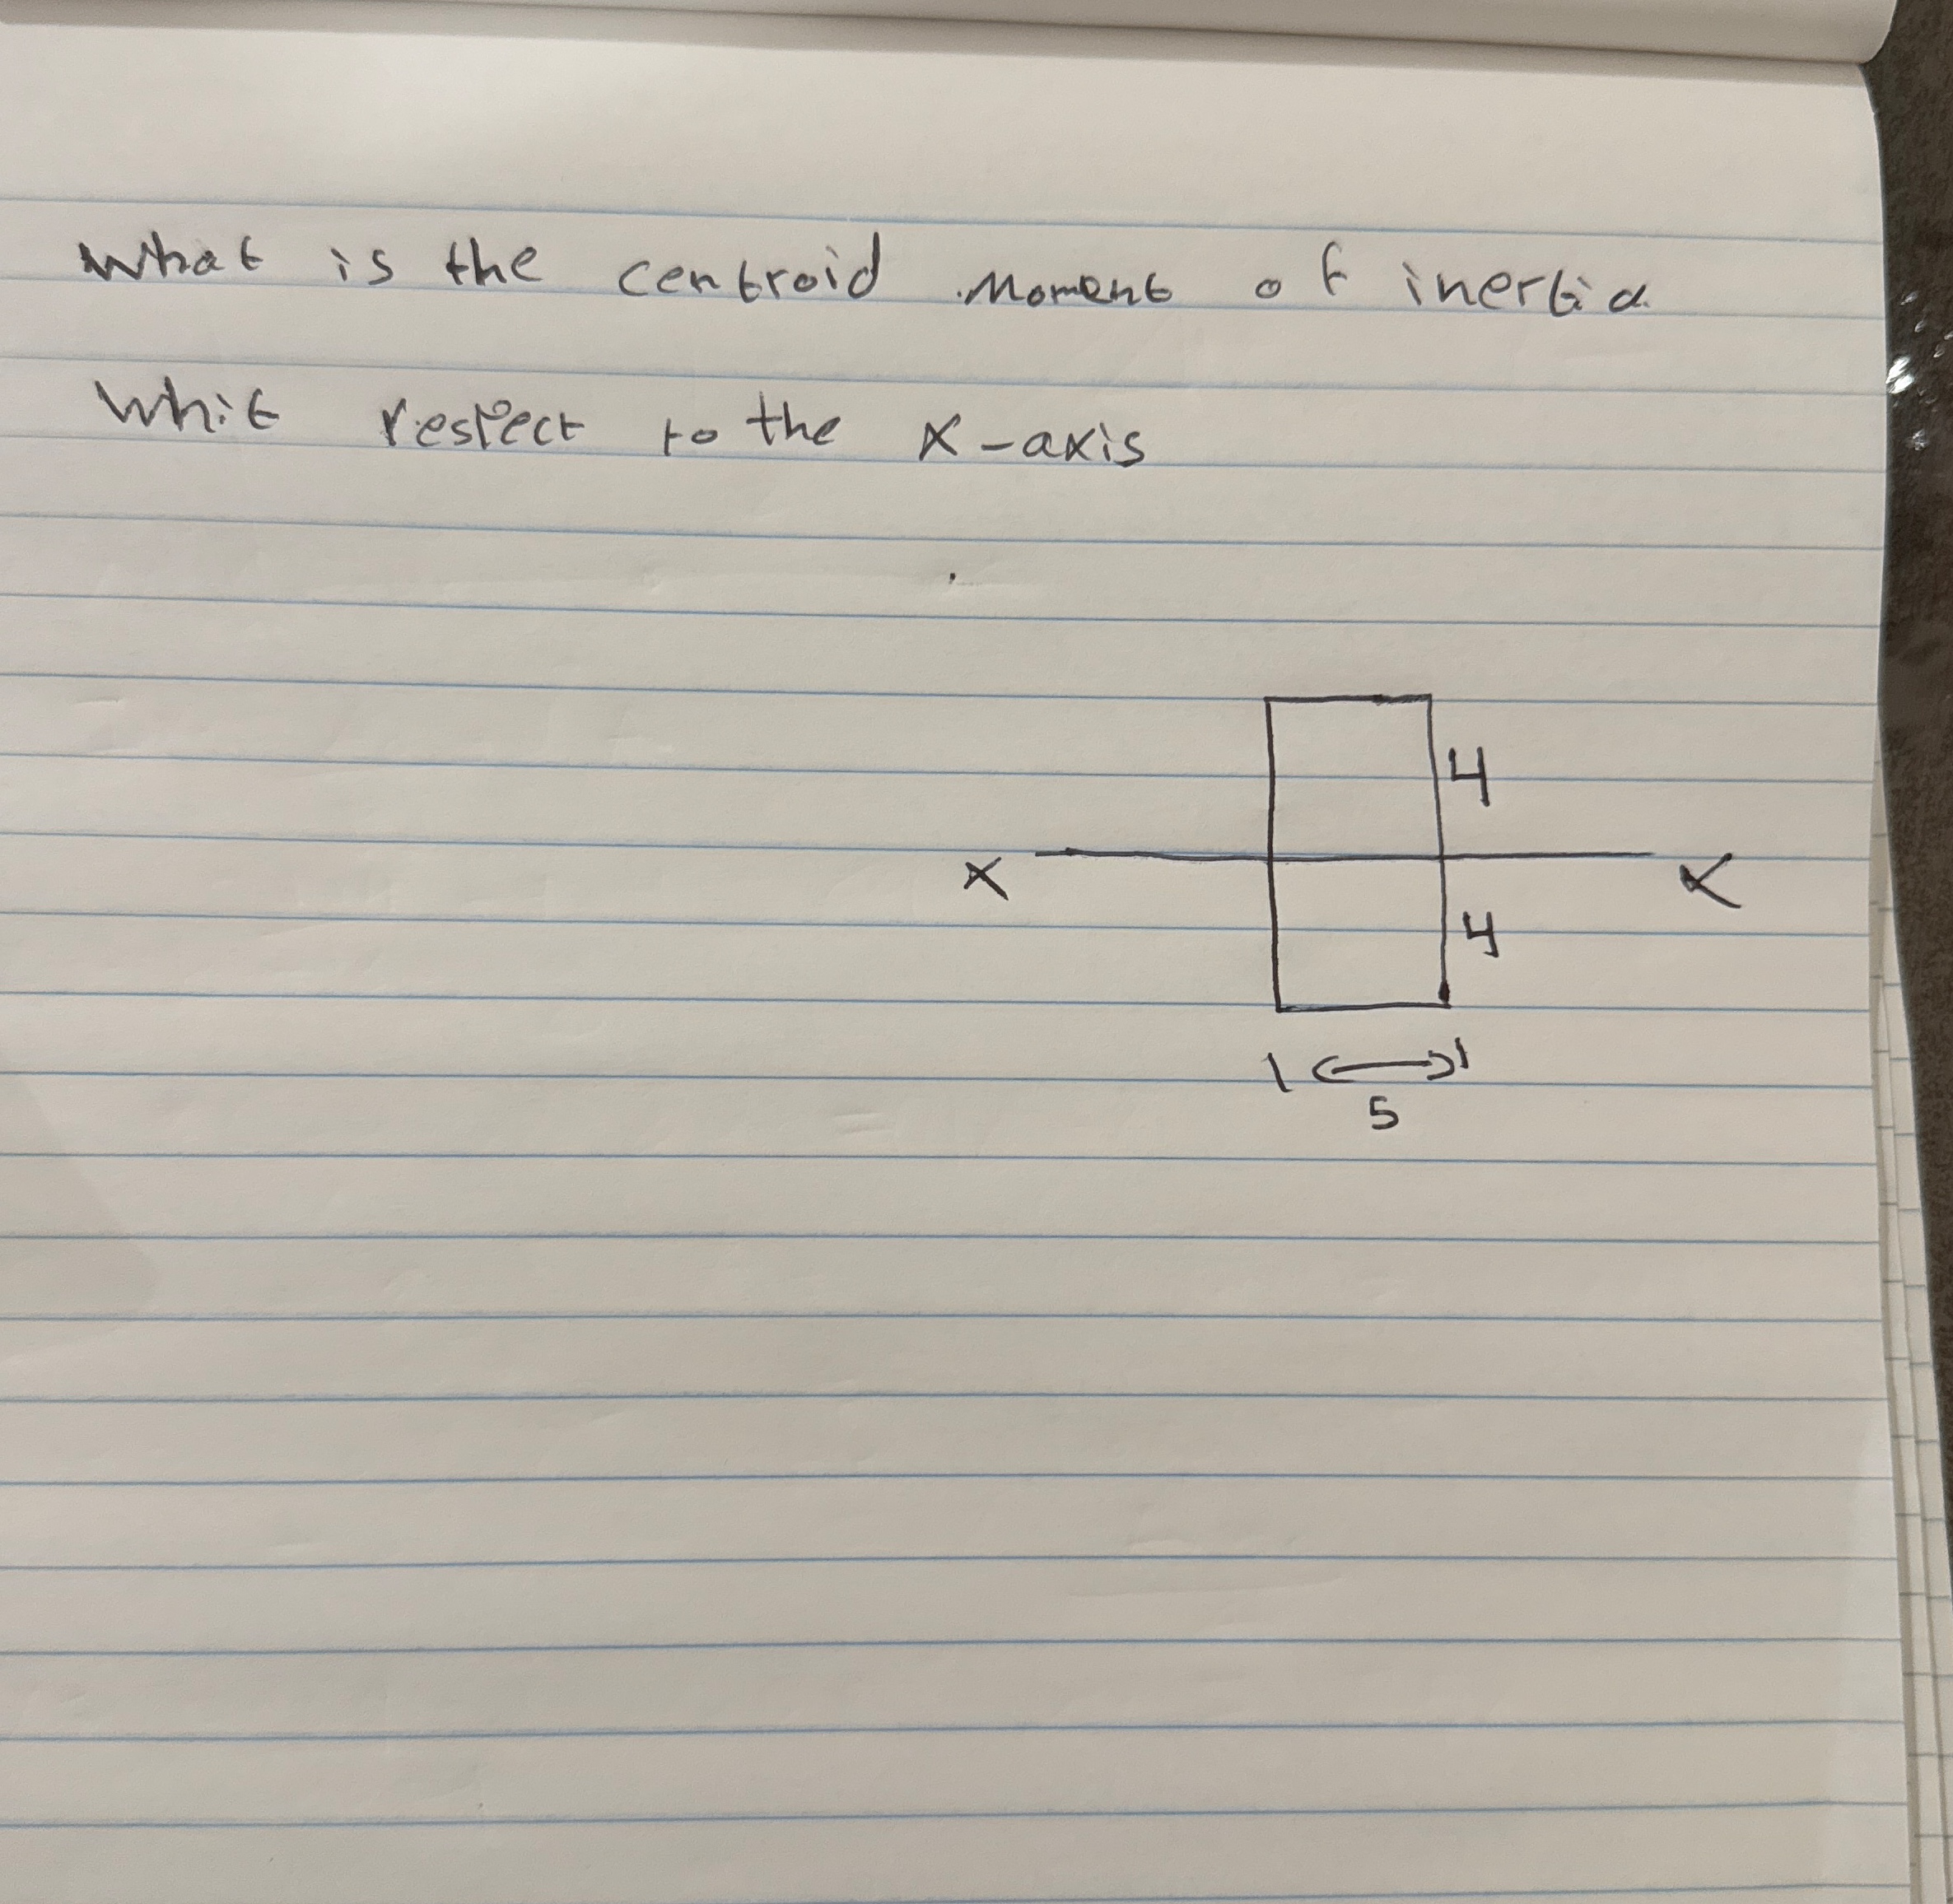 What is the centroid Moment of inertia
Whit respect to the x-axis
4
x x
4
5